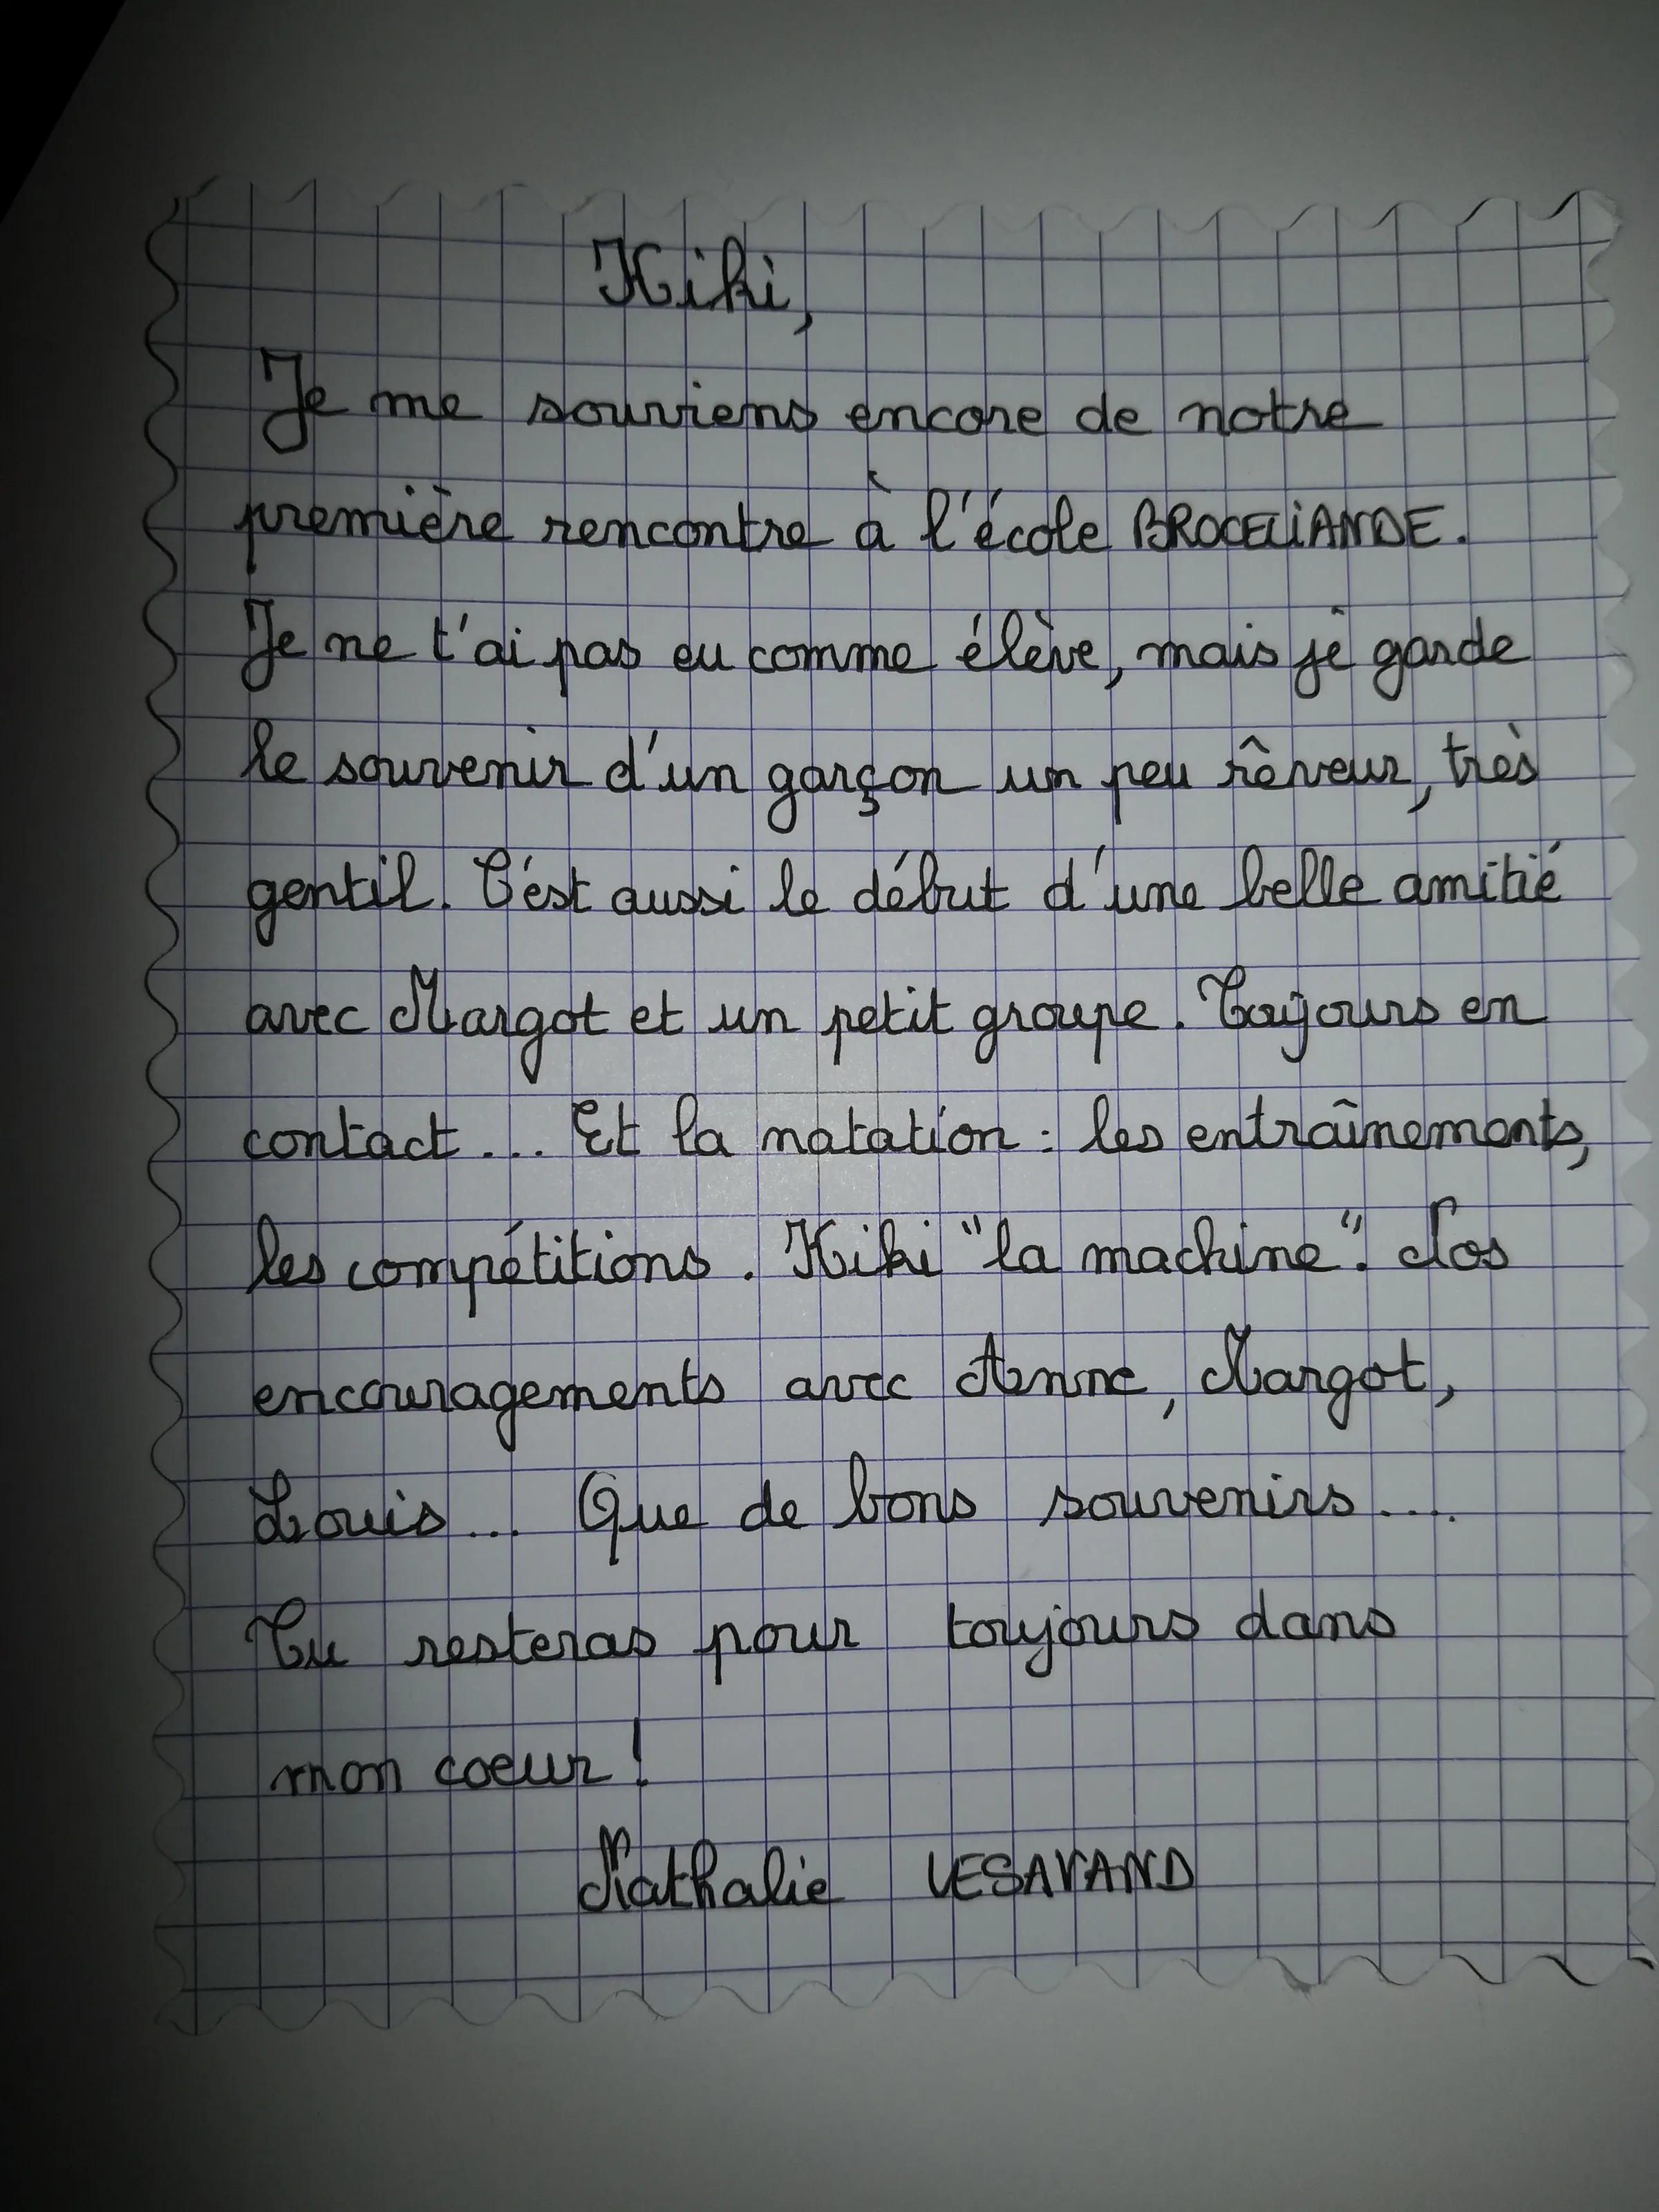 Kiki,
Je me souviens encore de notre
première rencontre à l'école BROCELiANDE.
Je ne t'ai pas eu comme élève, mais je garde
le souvenir d'un garçon un peu rêveur, très
gentil. C'est aussi le début d'une belle amitié
avec Margot et un petit groupe. Toujours en
contact... Et la natation : les entraînements,
les compétitions. Kiki "la machine". Nos
encouragements avec Anne, Margot,
Louis... Que de bons souvenirs....
Tu resteras pour toujours dans
mon coeur !
Nathalie LESAVAND